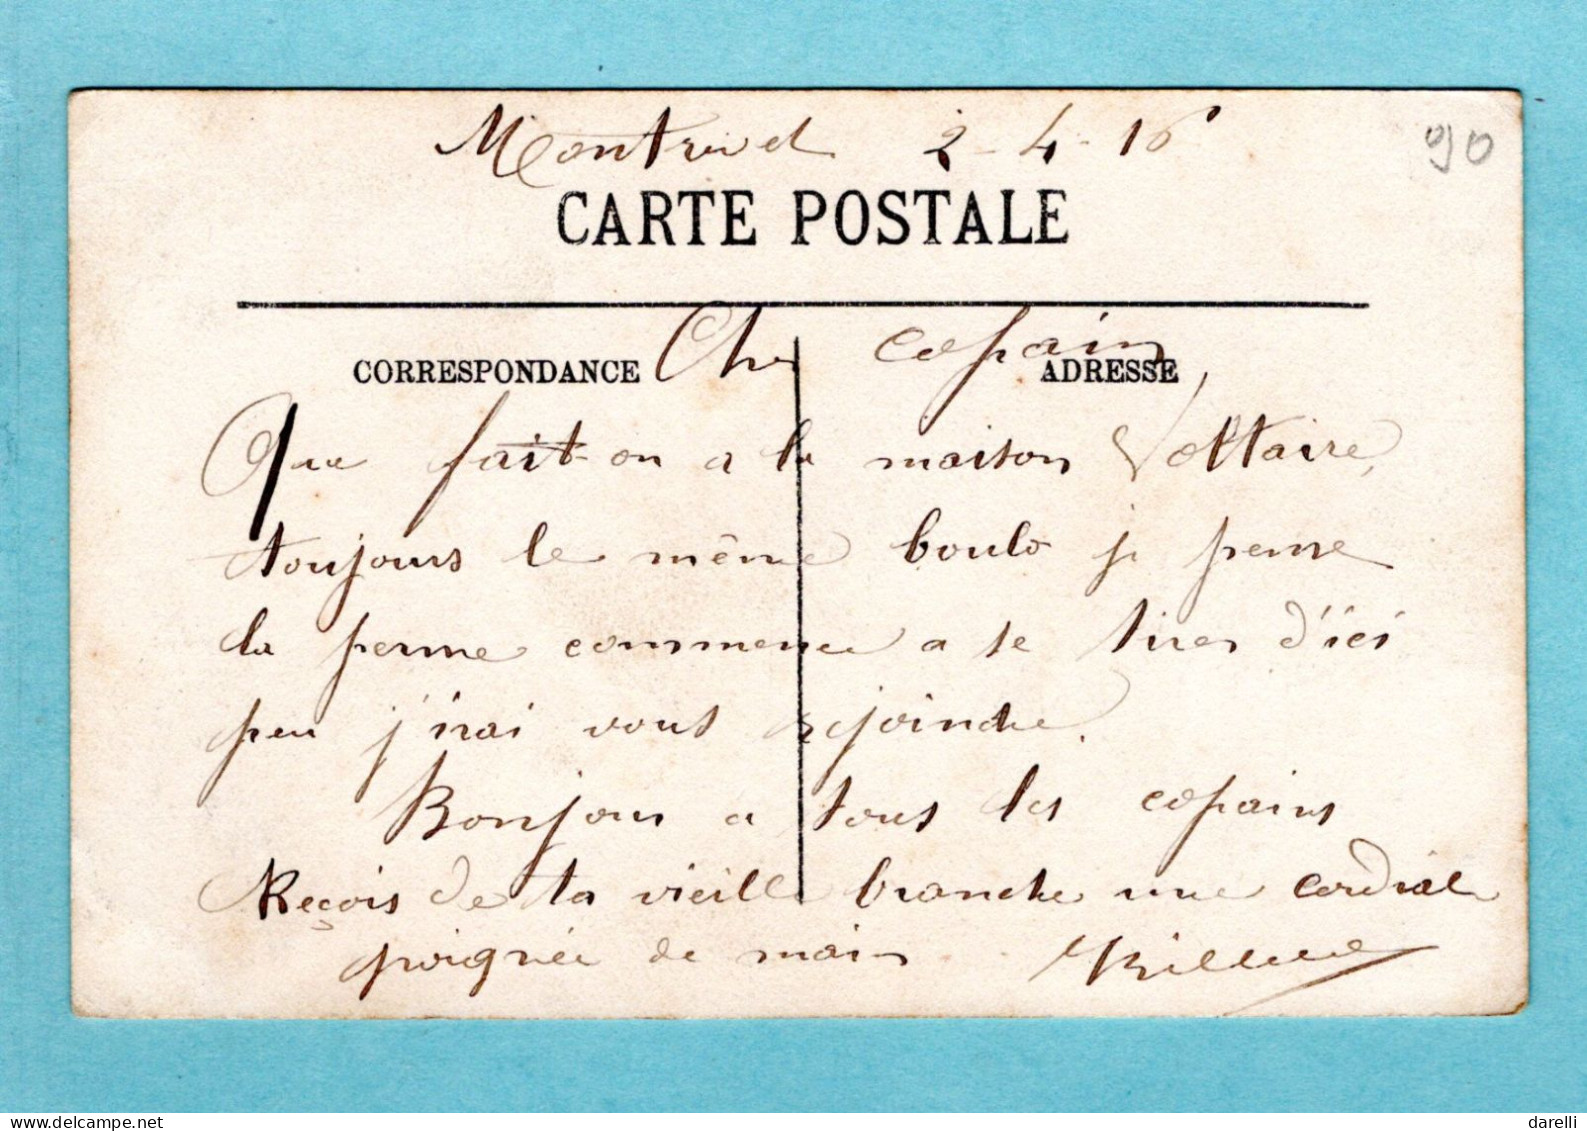 2-4-16
90
CARTE POSTALE
CORRESPONDANCE
ADRESSE
Cher copain
Que fait-on a la maison Voltaire,
toujours le même boulo je pense
la perme commence a se tirer d'ici
peu j'irai vous rejoindre.
Bonjour a tous les copains
Reçois de ta vieille branche une cordiale
poignée de main
delcampe.net
darelli